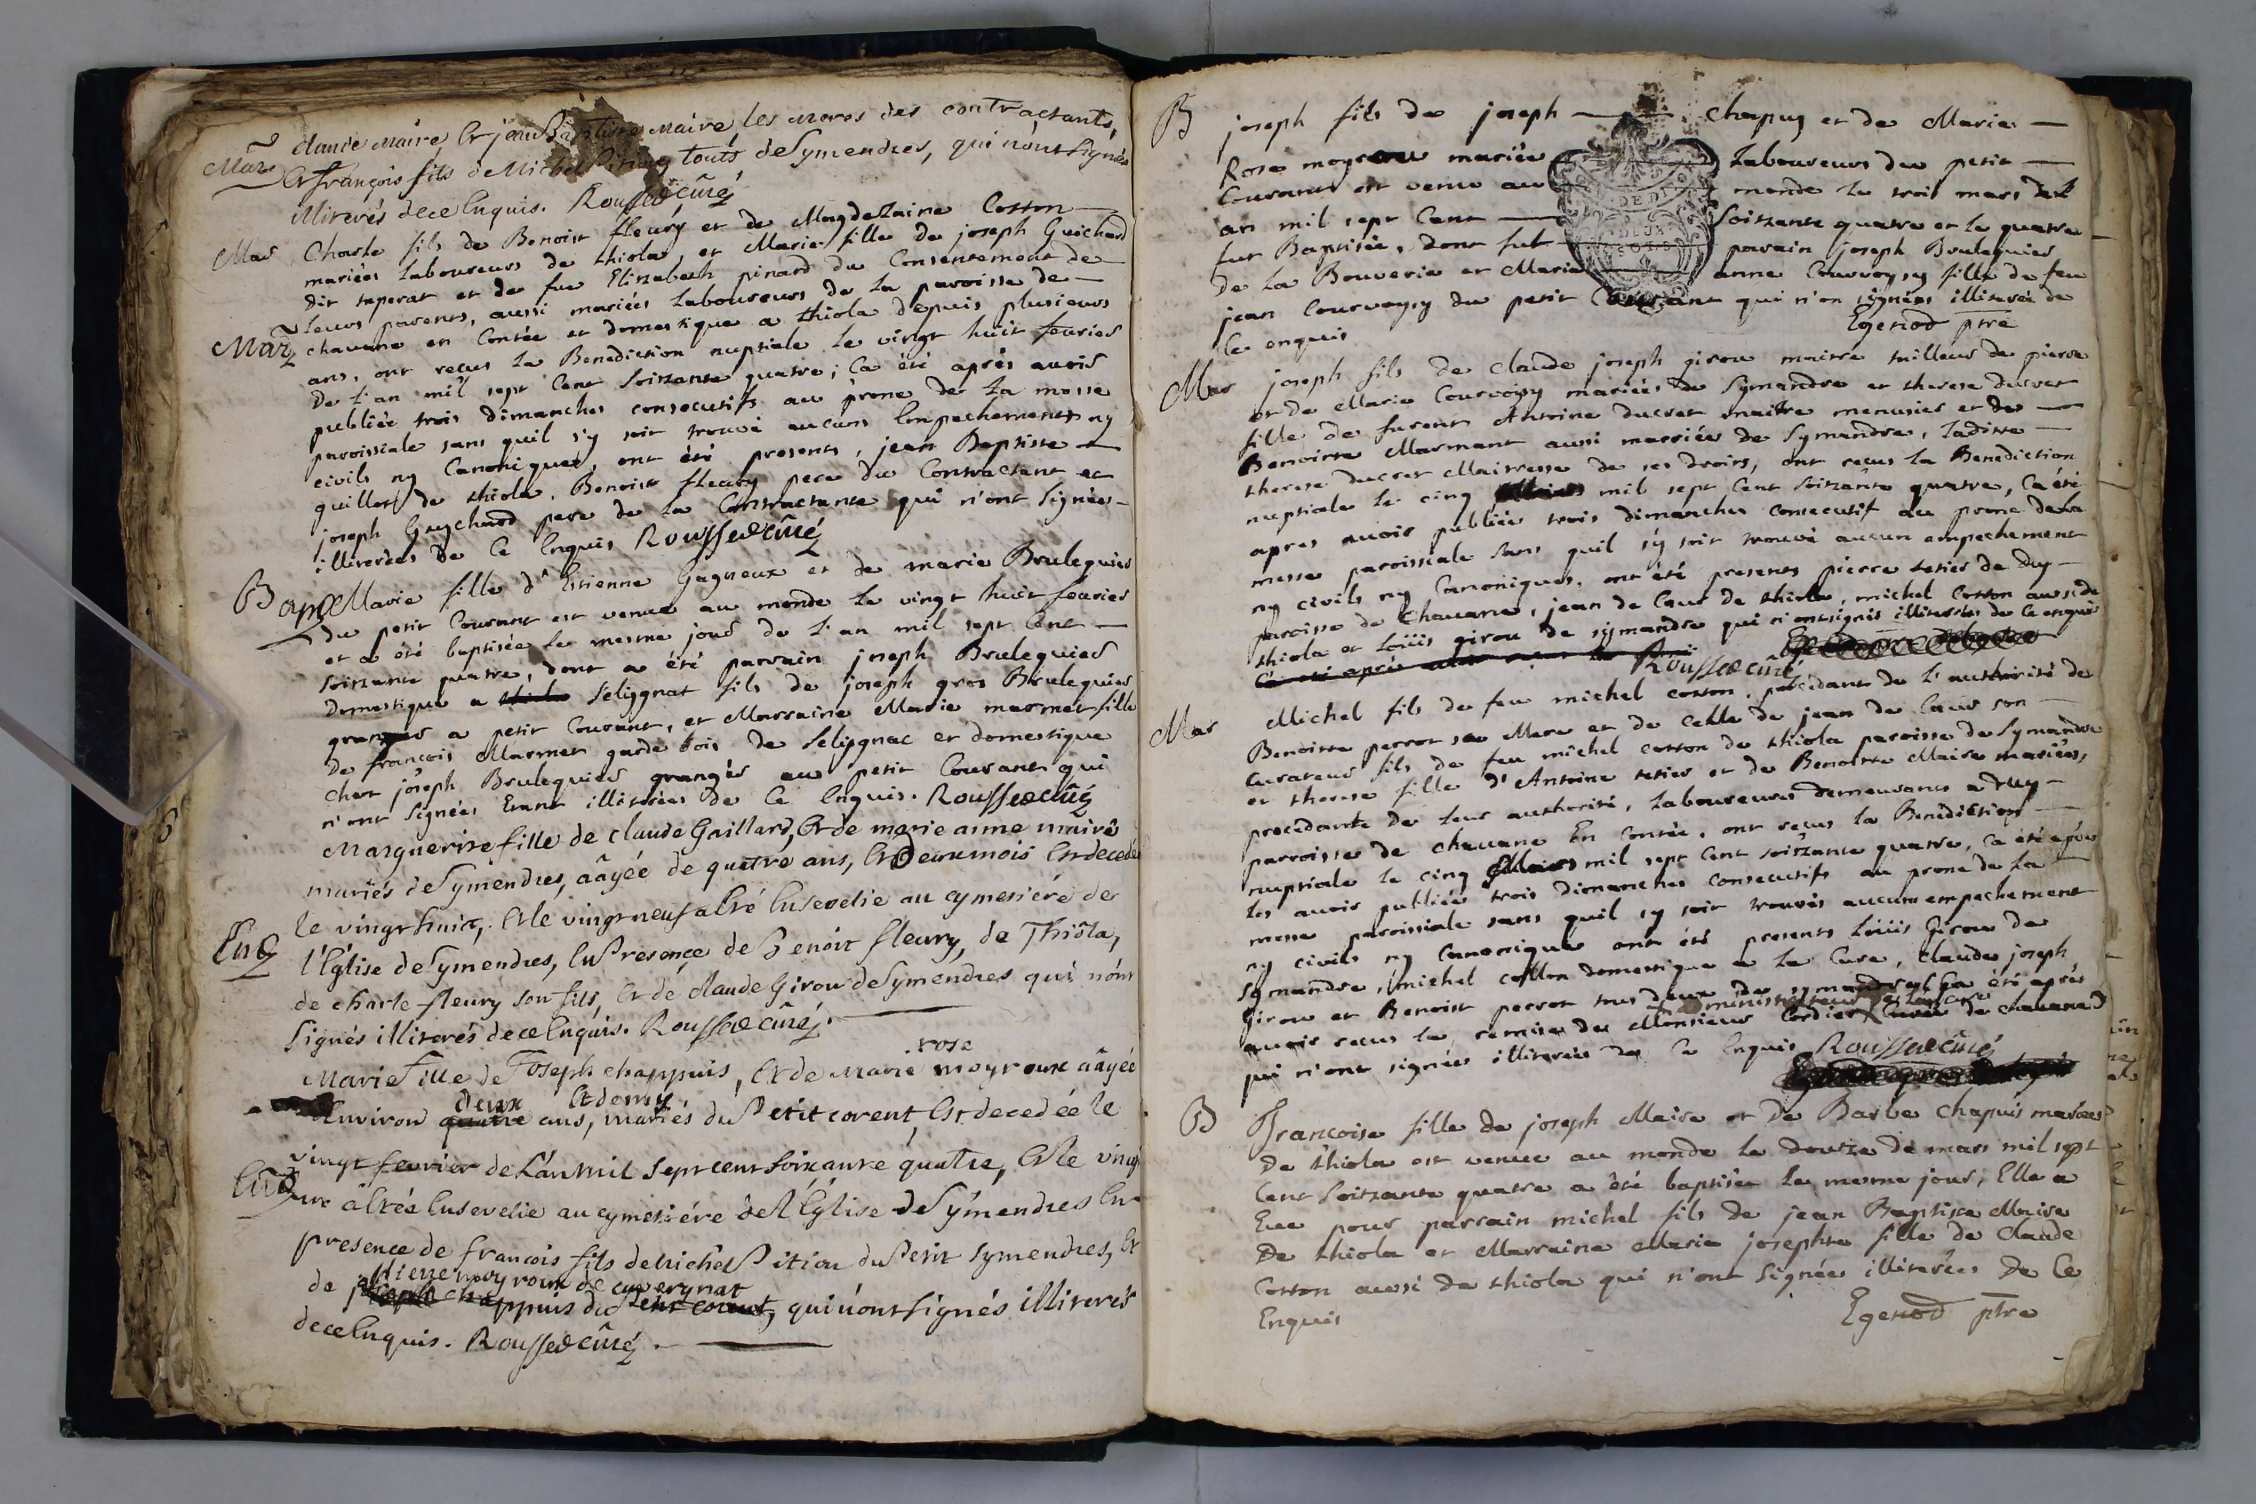 Mar
claude maire, Et jean Baptiste maire, les mores des contractants,
Et françois fils de Michel Pition touts de Symendres, qui n'ont signés
illiterés de ce Enquis. Roussed Curé
Mar Charle fils de Benoist fleury et de Magdelaine Cotton
mariées Laboureurs de thiola et Marie fille de joseph Guichard
dit taperat et de fue Elizabeth pinard du Consentement de
leurs parents, aussi mariées Laboureurs de la paroisse de
Mar chavanne en Contée et domestique a thiola depuis plusieurs
ans, ont reçus la Benediction nuptiale le vingt huit feurier
de l'an mil sept Cent Soixante quatre; Ca été aprés avoir
publiée trois dimanches consecutifs au prône de la messe
paroissiale sans quil s'y soit trouvé aucuns Empechements ny
civils ny Canoniques, ont été presents, jean Baptiste
quillot de thiola, Benoist fleury pere du Contractant et
joseph Guychard pere de la Contractante qui n'ont Signées
illiterées de Ce Enquis Roussed Curé
Bap Marie fille d'Estienne Gagneux et de marie Brulequier
du petit Courant est venue au monde le vingt huit feurier
et a été baptisée le mesme jour de L'an mil sept Cent
soixante quatre, dont a été parrain joseph Brulequier
domestique a thiola Selignat fils de joseph gros Brulequier
granger a petit Courant, et Marraine Marie marmet fille
de francois Marmet garde bois de Selignac et domestique
chez joseph Brulequier granger au petit Courant qui
n'ont Signées Etant illiterées de Ce Enquis. Roussed Curé
Marguerite fille de claude Gaillard, Et de marie anne maire
mariés de Symendres, aâgée de quatre ans, Et deux mois Est decedée
le vingt huit, Et le vingt neuf a Eté Ensevelie au cymetiére de
Ens l'Eglise de Symendres, En Presençe de Benoit fleury, de Thiôla,
de charle fleury son fils, Et de claude Girou de Symendres qui n'ont
Signés illiterés de ce Enquis. Roussed Curé.
rose
Marie fille de Joseph chappuis, Et de Marie moyroux aâgée
deux Et demy
d'Environ quatre ans, mariés du Petit corent, Est decedée le
vingt fevrier de L'an Mil Sept cent soixante quatre, Et le vingt
Ens un a Eté Ensevelie au cymetiére de l'Eglise de Symendres En
presence de françois fils de Michel Pition du Petit Symendres, Et
pierre moyroux de cuvergnat
de joseph chappuis du Petit corent, qui n'ont signés illiterés
de ce Enquis. Roussed Curé.
B joseph fils de joseph Chapuy et de Marie
Rose moyroux mariée Laboureurs du petit
Courant est venu au monde le trois mars de l
an mil sept Cent Soixante quatre et le quatre
fut Baptisée, dont fut parain joseph Brulequier
de la Bouverie et Marie anne Courvoysy fille de feu
jean Courvoysy du petit Courant qui n'on signées illiterée de
Ce enquis Egenod ptre
Mar joseph fils de Claude joseph girou maitre tailleur de pierre
et de Marie Courvoisy mariées de Symandre et therese ducret
fille de furent Antoine ducret maitre menusier et de
Benoitte Marmont aussi mariées de Symandre, Ladite
therese ducret Maitresse de ses droits, ont reçus la Benediction
nuptiale le cinq Mars mil sept Cent Soixante quatre, Ca été
apres avoir publiée trois dimanches Consecutif au prone de la
messe paroissiale Sans quil s'y soit trouvé aucun empechement
ny civils ny Canoniques, ont été presents pierre tetier de duy
paroisse de Chavane, jean de Cour de thiola, michel Cotton aussi de
thiola et Loüis girou de symandre qui n'ont signés illiterées de Ce enquis
Ca eté aprés
Roussed curé
Mar Michel fils de feu michel cotton, procédant de l'authorité de
Benoitte perrot sa Mere et de Celle de jean de Cour son
Curateur fils de feu michel cotton de thiola paroisse de Symandre
et therese fille d'Antoine tetier et de Benoitte Maire mariées,
procédante de leur authorité, Laboureurs demeurants a duy
parroisse de chavane En Contée, ont reçus la Benediction
nuptiale le cinq Mars mil sept Cent soixante quatre, Ca été aprés
les avoir publiée trois dimanches Consecutifs au prone de la
messe paroissiale sans quil sy soit trouvés aucun empechement
ny civils ny Canoniques ont été presents Loüis Girou de
Symandre, michel cotton domestique a la Cure, Claude joseph
Girou et Benoist perrot tous deux de symandre Ca été aprés
administrateur de la cure
avoir reçus la remise de Monsieur Cordier Curé de chavane
qui n'ont signées illiterées de Ce Enquis Roussed curé
B Françoise fille de joseph Maire et de Barbe Chapuis mariées
de thiola est venue au monde le douze de mars mil sept
Cent Soixante quatre a été baptisée le mesme jour, Elle a
Eue pour parrain michel fils de jean Baptiste Maire
de thiola et Marraine Marie josephte fille de Claude
Cotton aussi de thiola qui n'ont Signées illiterées de Ce
Enquis Egenod ptre